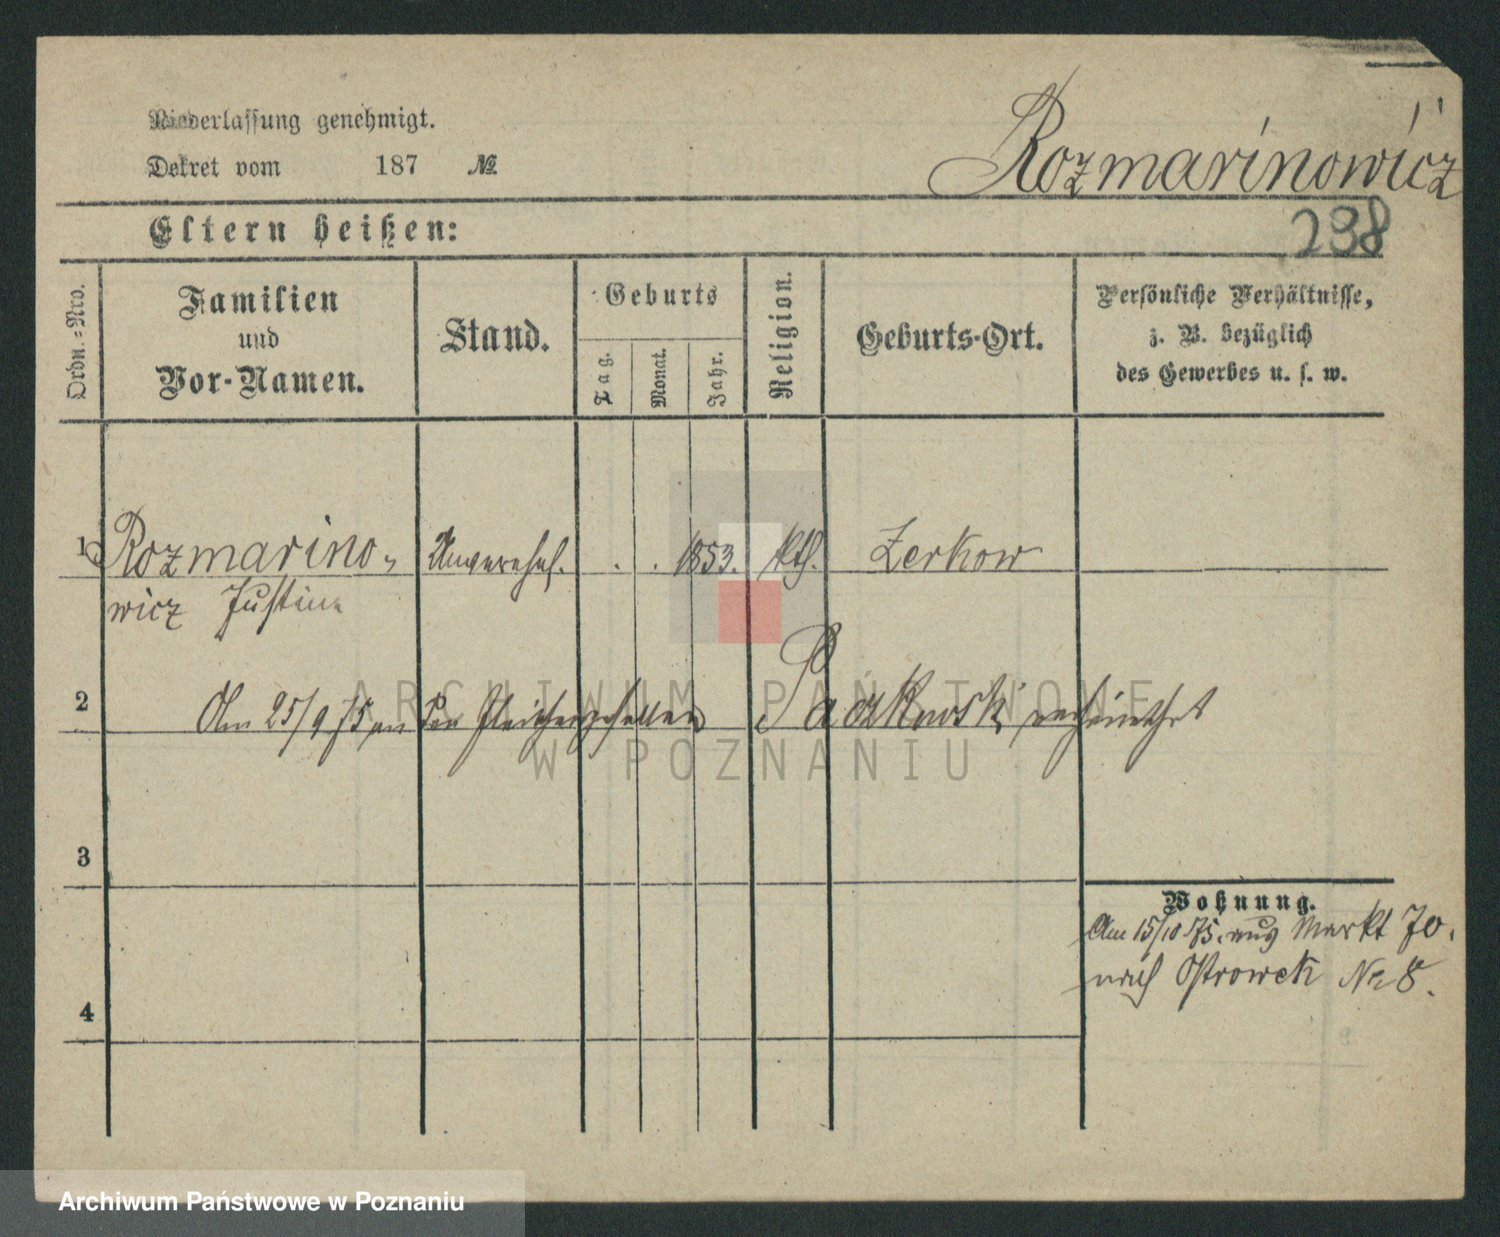 Niederlassung genehmigt.
Dekret vom 187 №
Rozmarinowicz
Eltern heißen:
238
Ordn.=Nro.
Familien
und
Vor-Namen.
Stand.
Geburts
Tag.
Monat.
Jahr.
Religion.
Geburts-Ort.
Persönliche Verhältnisse,
z. B. bezüglich
des Gewerbes u. s. w.
1 Rozmarino- Unverehel. . . 1853. kth. Zerkow
wicz Justina
2 Am 25/9 75 an den Fleischergesellen Paczkowski verheirathet
ARCHIWUM PAŃSTWOWE
W POZNANIU
3
Wohnung.
Am 15/10 75. aus Markt 70.
nach Ostrowek No 8.
4
Archiwum Państwowe w Poznaniu